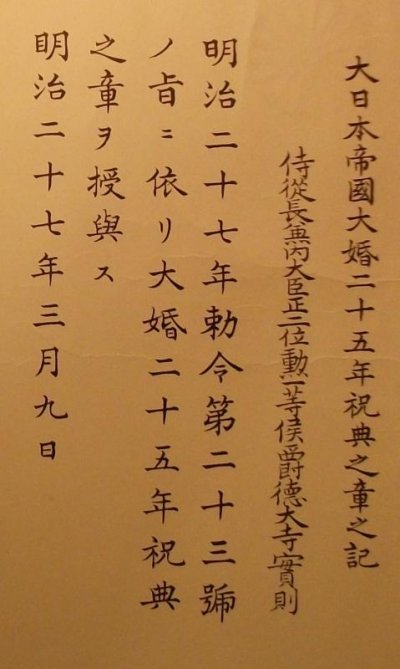 大日本帝國大婚二十五年祝典之章之記
侍從長兼內大臣正二位勳一等侯爵德大寺實則
明治二十七年勅令第二十三號
ノ旨ニ依リ大婚二十五年祝典
之章ヲ授與ス
明治二十七年三月九日